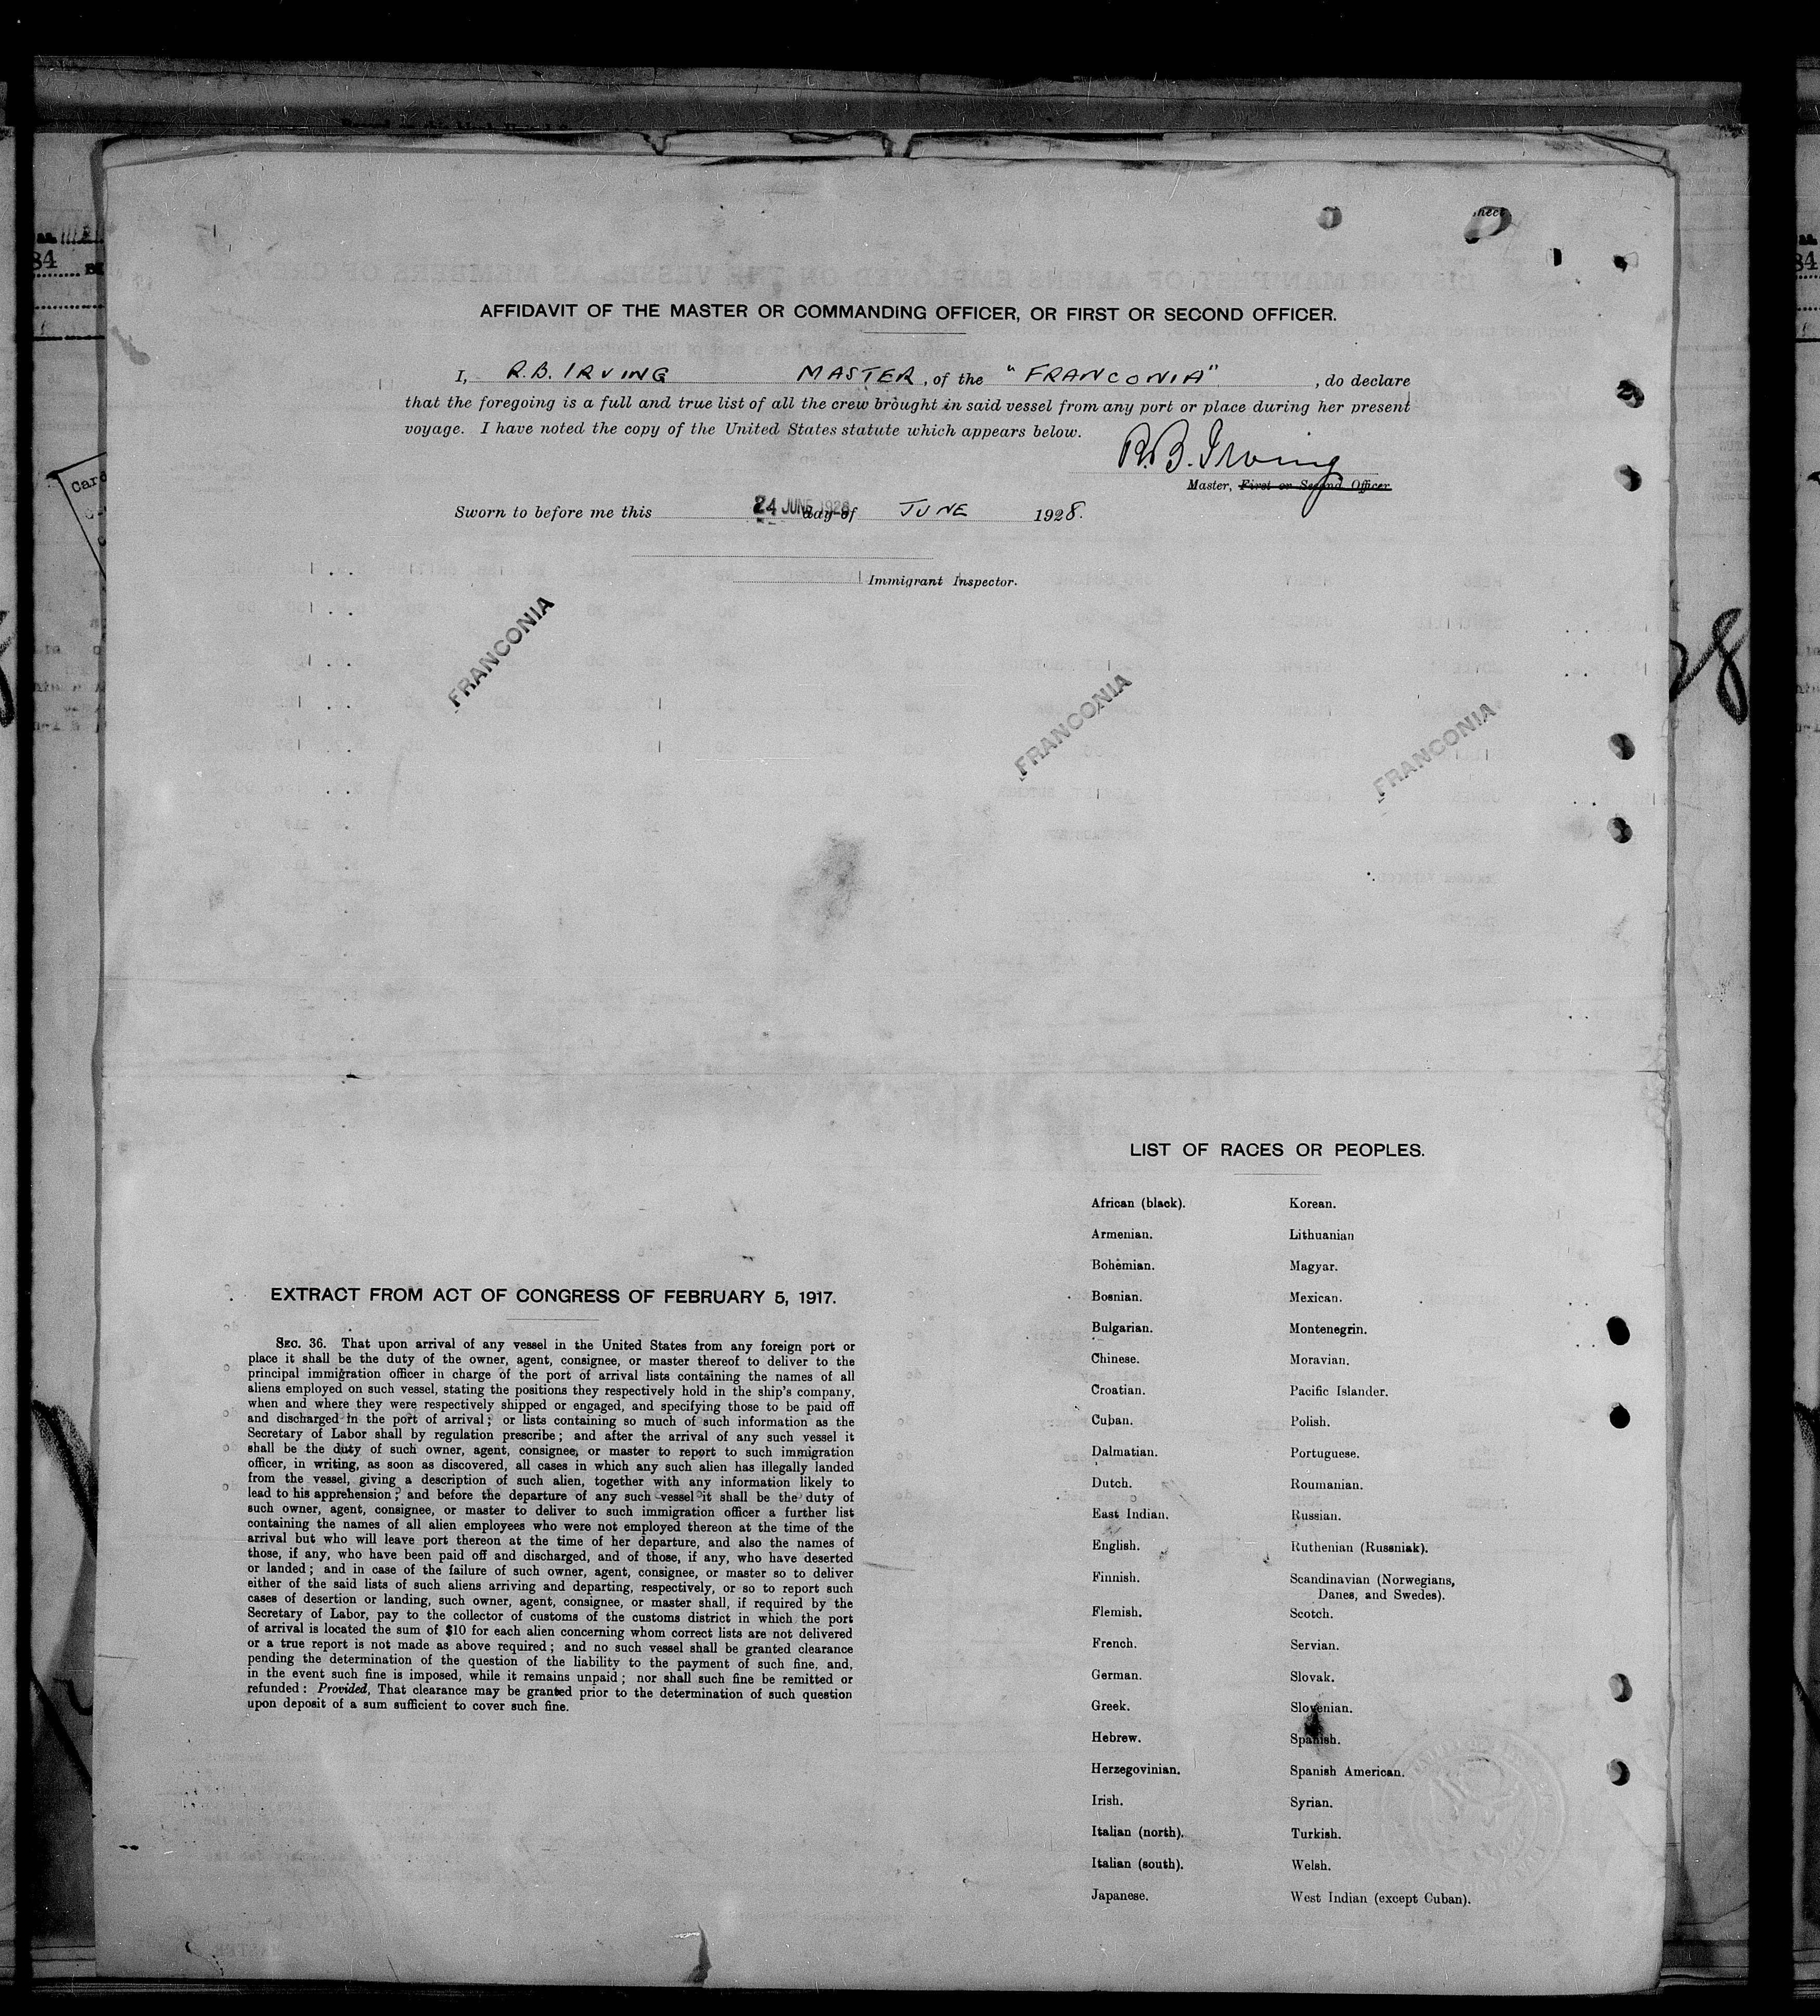 AFFIDAVIT OF THE MASTER OR COMMANDING OFFICER, OR FIRST OR SECOND OFFICER.
I, R.B. IRVING MASTER, of the "FRANCONIA", do declare
that the foregoing is a full and true list of all the crew brought in said vessel from any port or place during her present
voyage. I have noted the copy of the United States statute which appears below.
R.B. Irving
Master, First or Second Officer
Sworn to before me this 24 JUNE 1928 day of JUNE 1928.
Immigrant Inspector.
FRANCONIA
FRANCONIA
FRANCONIA
28
EXTRACT FROM ACT OF CONGRESS OF FEBRUARY 5, 1917.
SEC. 36. That upon arrival of any vessel in the United States from any foreign port or
place it shall be the duty of the owner, agent, consignee, or master thereof to deliver to the
principal immigration officer in charge of the port of arrival lists containing the names of all
aliens employed on such vessel, stating the positions they respectively hold in the ship's company,
when and where they were respectively shipped or engaged, and specifying those to be paid off
and discharged in the port of arrival; or lists containing so much of such information as the
Secretary of Labor shall by regulation prescribe; and after the arrival of any such vessel it
shall be the duty of such owner, agent, consignee, or master to report to such immigration
officer, in writing, as soon as discovered, all cases in which any such alien has illegally landed
from the vessel, giving a description of such alien, together with any information likely to
lead to his apprehension; and before the departure of any such vessel it shall be the duty of
such owner, agent, consignee, or master to deliver to such immigration officer a further list
containing the names of all alien employees who were not employed thereon at the time of the
arrival but who will leave port thereon at the time of her departure, and also the names of
those, if any, who have been paid off and discharged, and of those, if any, who have deserted
or landed; and in case of the failure of such owner, agent, consignee, or master so to deliver
either of the said lists of such aliens arriving and departing, respectively, or so to report such
cases of desertion or landing, such owner, agent, consignee, or master shall, if required by the
Secretary of Labor, pay to the collector of customs of the customs district in which the port
of arrival is located the sum of $10 for each alien concerning whom correct lists are not delivered
or a true report is not made as above required; and no such vessel shall be granted clearance
pending the determination of the question of the liability to the payment of such fine, and,
in the event such fine is imposed, while it remains unpaid; nor shall such fine be remitted or
refunded: Provided, That clearance may be granted prior to the determination of such question
upon deposit of a sum sufficient to cover such fine.
LIST OF RACES OR PEOPLES.
African (black).
Armenian.
Bohemian.
Bosnian.
Bulgarian.
Chinese.
Croatian.
Cuban.
Dalmatian.
Dutch.
East Indian.
English.
Finnish.
Flemish.
French.
German.
Greek.
Hebrew.
Herzegovinian.
Irish.
Italian (north).
Italian (south).
Japanese.
Korean.
Lithuanian
Magyar.
Mexican.
Montenegrin.
Moravian.
Pacific Islander.
Polish.
Portuguese.
Roumanian.
Russian.
Ruthenian (Russniak).
Scandinavian (Norwegians,
Danes, and Swedes).
Scotch.
Servian.
Slovak.
Slovenian.
Spanish.
Spanish American.
Syrian.
Turkish.
Welsh.
West Indian (except Cuban).